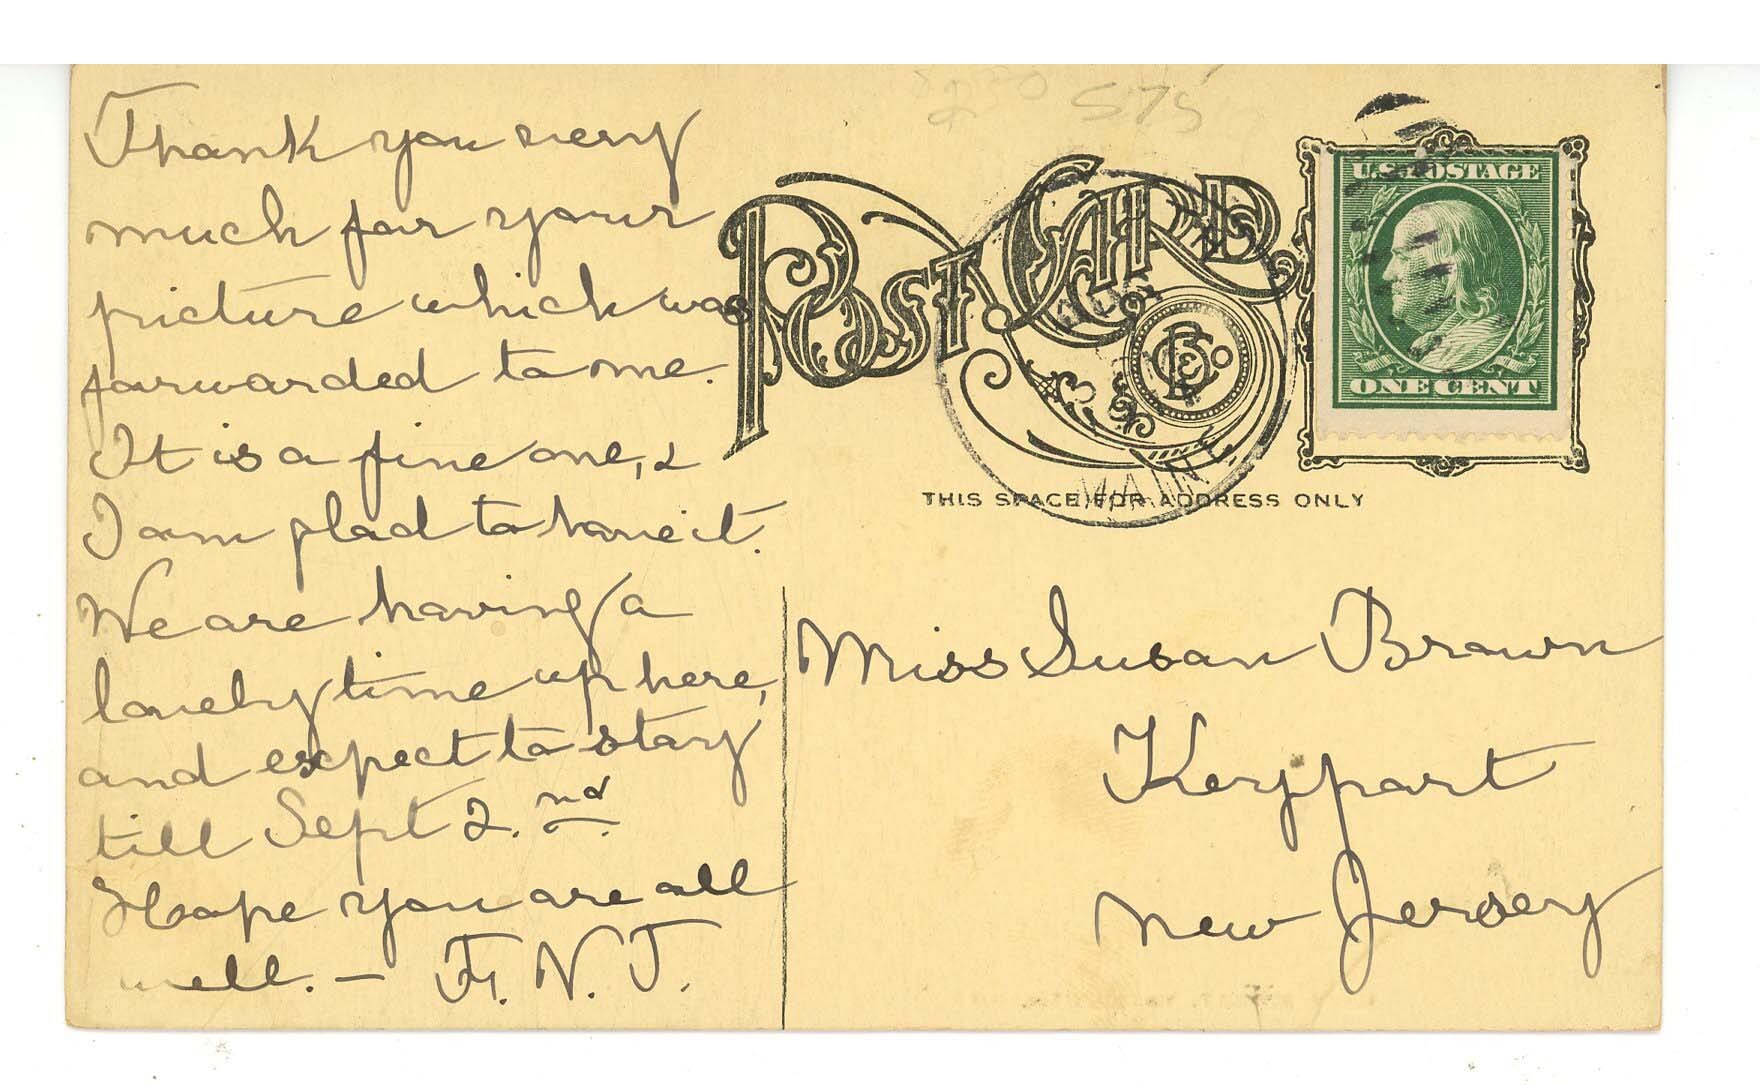 Thank you very
much for your
picture which was
forwarded to me.
It is a fine one, &
I am glad to have it.
We are having a
lovely time up here,
and expect to stay
till Sept 2. nd
Hope you are all
well. — F. N. J.
575
POST CARD
THIS SPACE FOR ADDRESS ONLY
MAINE
U.S. POSTAGE
ONE CENT
Miss Susan Brown
Keyport
New Jersey